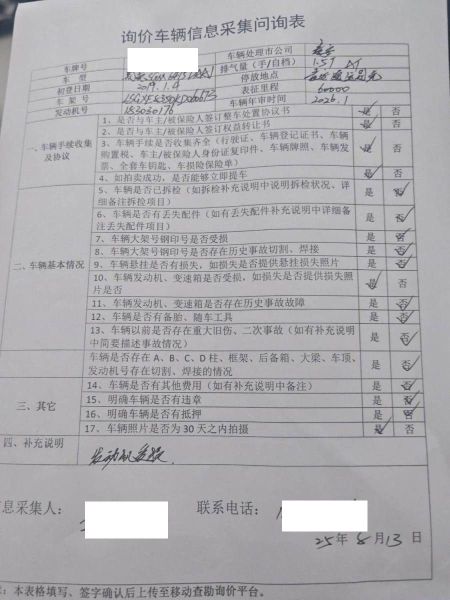 询价车辆信息采集问询表
车牌号 车辆处理市公司
车 型 排气量（手/自档） 1.5T AT
初登日期 2019.1.4 停放地点
车 架 号 表征里程 60000
发动机号 183030176 车辆年审时间 2026.1
一、车辆手续收集及协议
1、是否与车主/被保险人签订整车处置协议书 是 否
2、是否与车主/被保险人签订权益转让书 是 否
3、车辆手续是否收集齐全（行驶证、车辆登记证书、车辆购置税、车主/被保险人身份证复印件、车辆牌照、车辆发票、全套车钥匙、车损险保险单） 是 否
4、如拍卖成功，是否能够立即提车 是 否
二、车辆基本情况
5、车辆是否已拆检（如拆检补充说明中说明拆检状况、详细备注拆检项目） 是 否
6、车辆是否有丢失配件（如有丢失配件补充说明中详细备注丢失配件项目） 是 否
7、车辆大架号钢印号是否受损 是 否
8、车辆大架号钢印号是否存在历史事故切割、焊接 是 否
9、车辆悬挂是否有损失，如损失是否提供悬挂损失照片 是 否
10、车辆发动机、变速箱是否受损，如损失是否提供损失照片是否 是 否
11、车辆发动机、变速箱是否存在历史事故故障 是 否
12、车辆是否有备胎、随车工具 是 否
13、车辆以前是否存在重大旧伤、二次事故（如有补充说明中简要描述事故情况） 是 否
车辆是否存在 A、B、C、D 柱、框架、后备箱、大梁、车顶、发动机号存在切割、焊接的情况 是 否
三、其它
14、车辆是否有其他费用（如有补充说明中备注） 是 否
15、明确车辆是否有违章 是 否
16、明确车辆是否有抵押 是 否
17、车辆照片是否为 30 天之内拍摄 是 否
四、补充说明
发动机受损.
信息采集人： 联系电话：
25 年 8 月 13 日
：本表格填写、签字确认后上传至移动查勘询价平台。